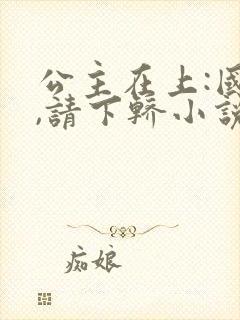 公主在上:國
,請下轎小說
痴娘